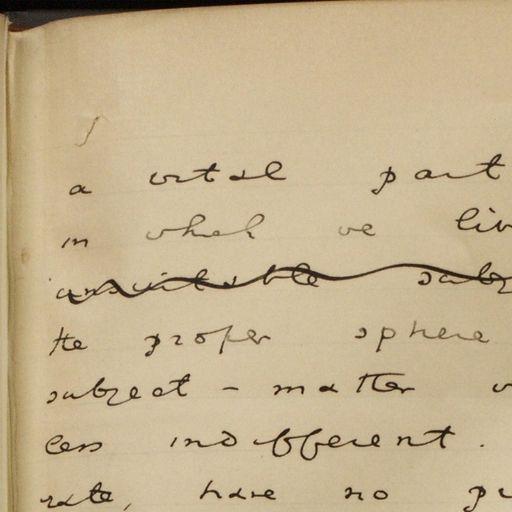 a vital part
in which we liv
unsuitable subj
the proper sphere
subject-matter
less indifferent.
rate, have no